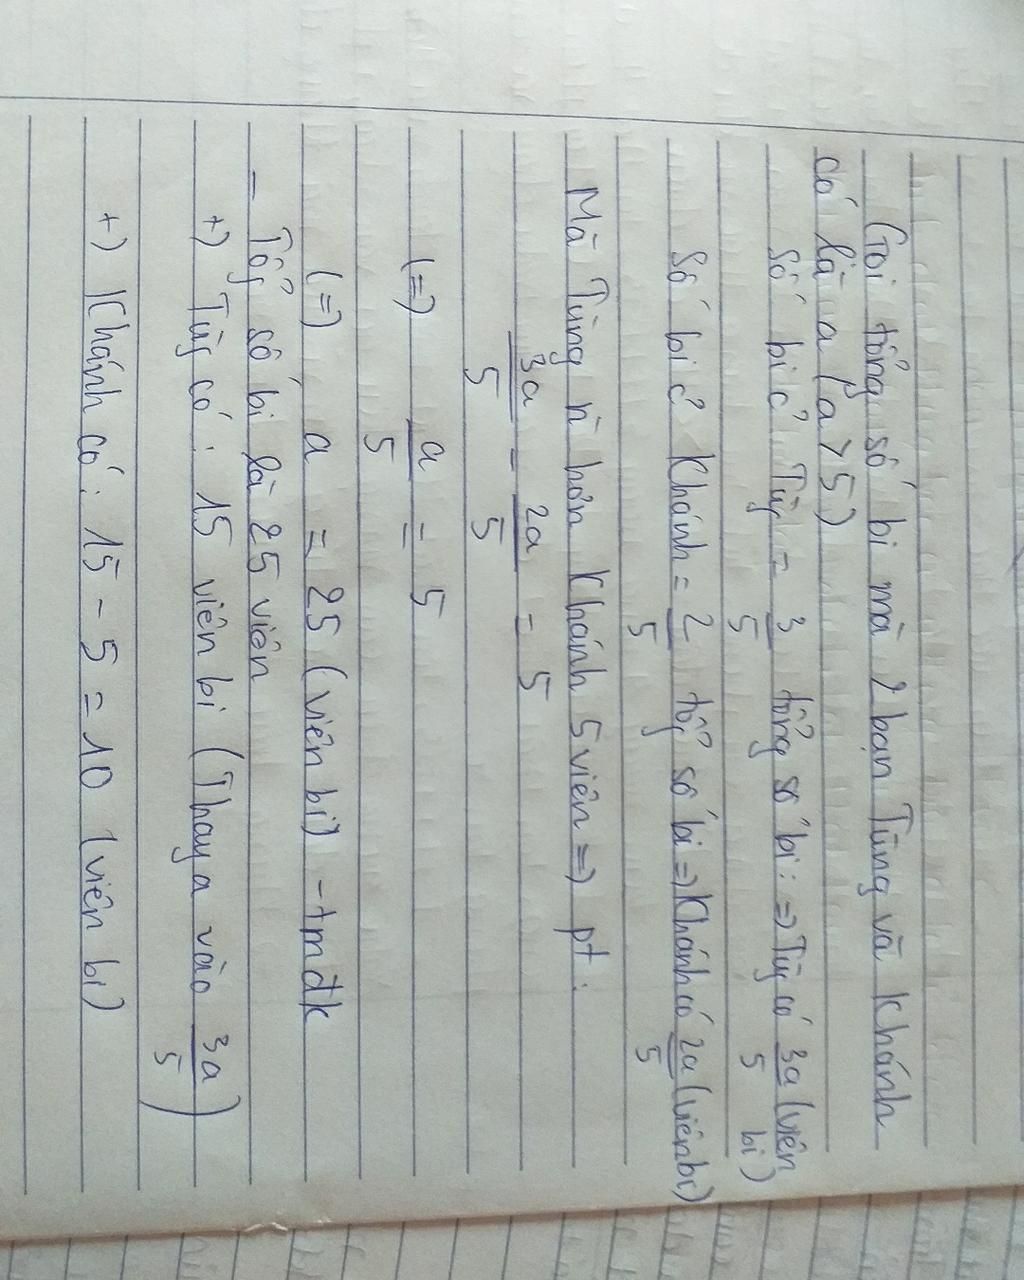 Gọi tổng số bi mà 2 bạn Tùng và Khánh
có là a (a > 5)
Số bi c² Tùg = 3/5 tổng số bi: => Tùg có 3a/5 (viên bi)
Số bi c² Khánh = 2/5 tổg số bi => Khánh có 2a/5 (viên bi)
Mà Tùng n` hơn Khánh 5 viên => pt:
3a/5 - 2a/5 = 5
(=) a/5 = 5
(=) a = 25 (viên bi) - tmđk
- Tổg số bi là 25 viên
+) Tùg có: 15 viên bi (Thay a vào 3a/5)
+) Khánh có: 15 - 5 = 10 (viên bi)